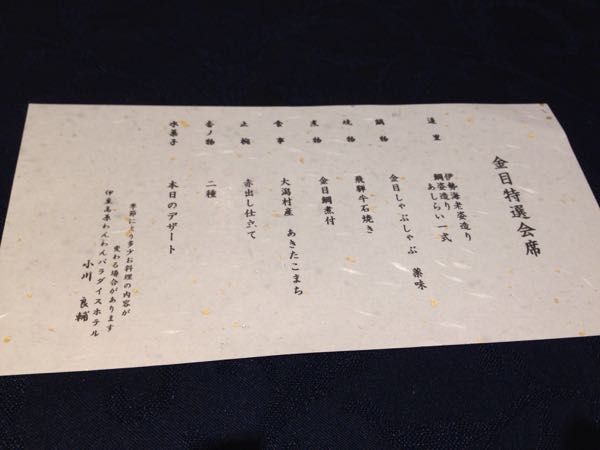 金目特選会席
造里 伊勢海老姿造り
鯛姿造り
あしらい一式
鍋物 金目しゃぶしゃぶ 薬味
焼物 飛騨牛石焼き
煮物 金目鯛煮付
食事 大潟村産 あきたこまち
止椀 赤出し仕立て
香ノ物 二種
水菓子 本日のデザート
季節により多少お料理の内容が
変わる場合があります
伊豆高原わんわんパラダイスホテル
小川 良輔